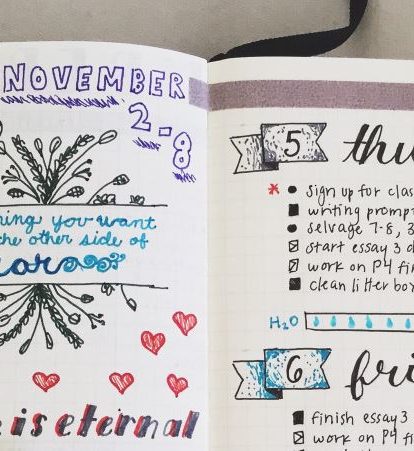 NOVEMBER
2-8
you want
the other side of
is eternal
5 thu
* • sign up for clas
■ writing promp
• selvage 7-8, 3
☒ start essay 3 d
work on P4 fin
■ clean litter box
H2O
6 fri
■ finish essay 3
☒ work on P4 fi